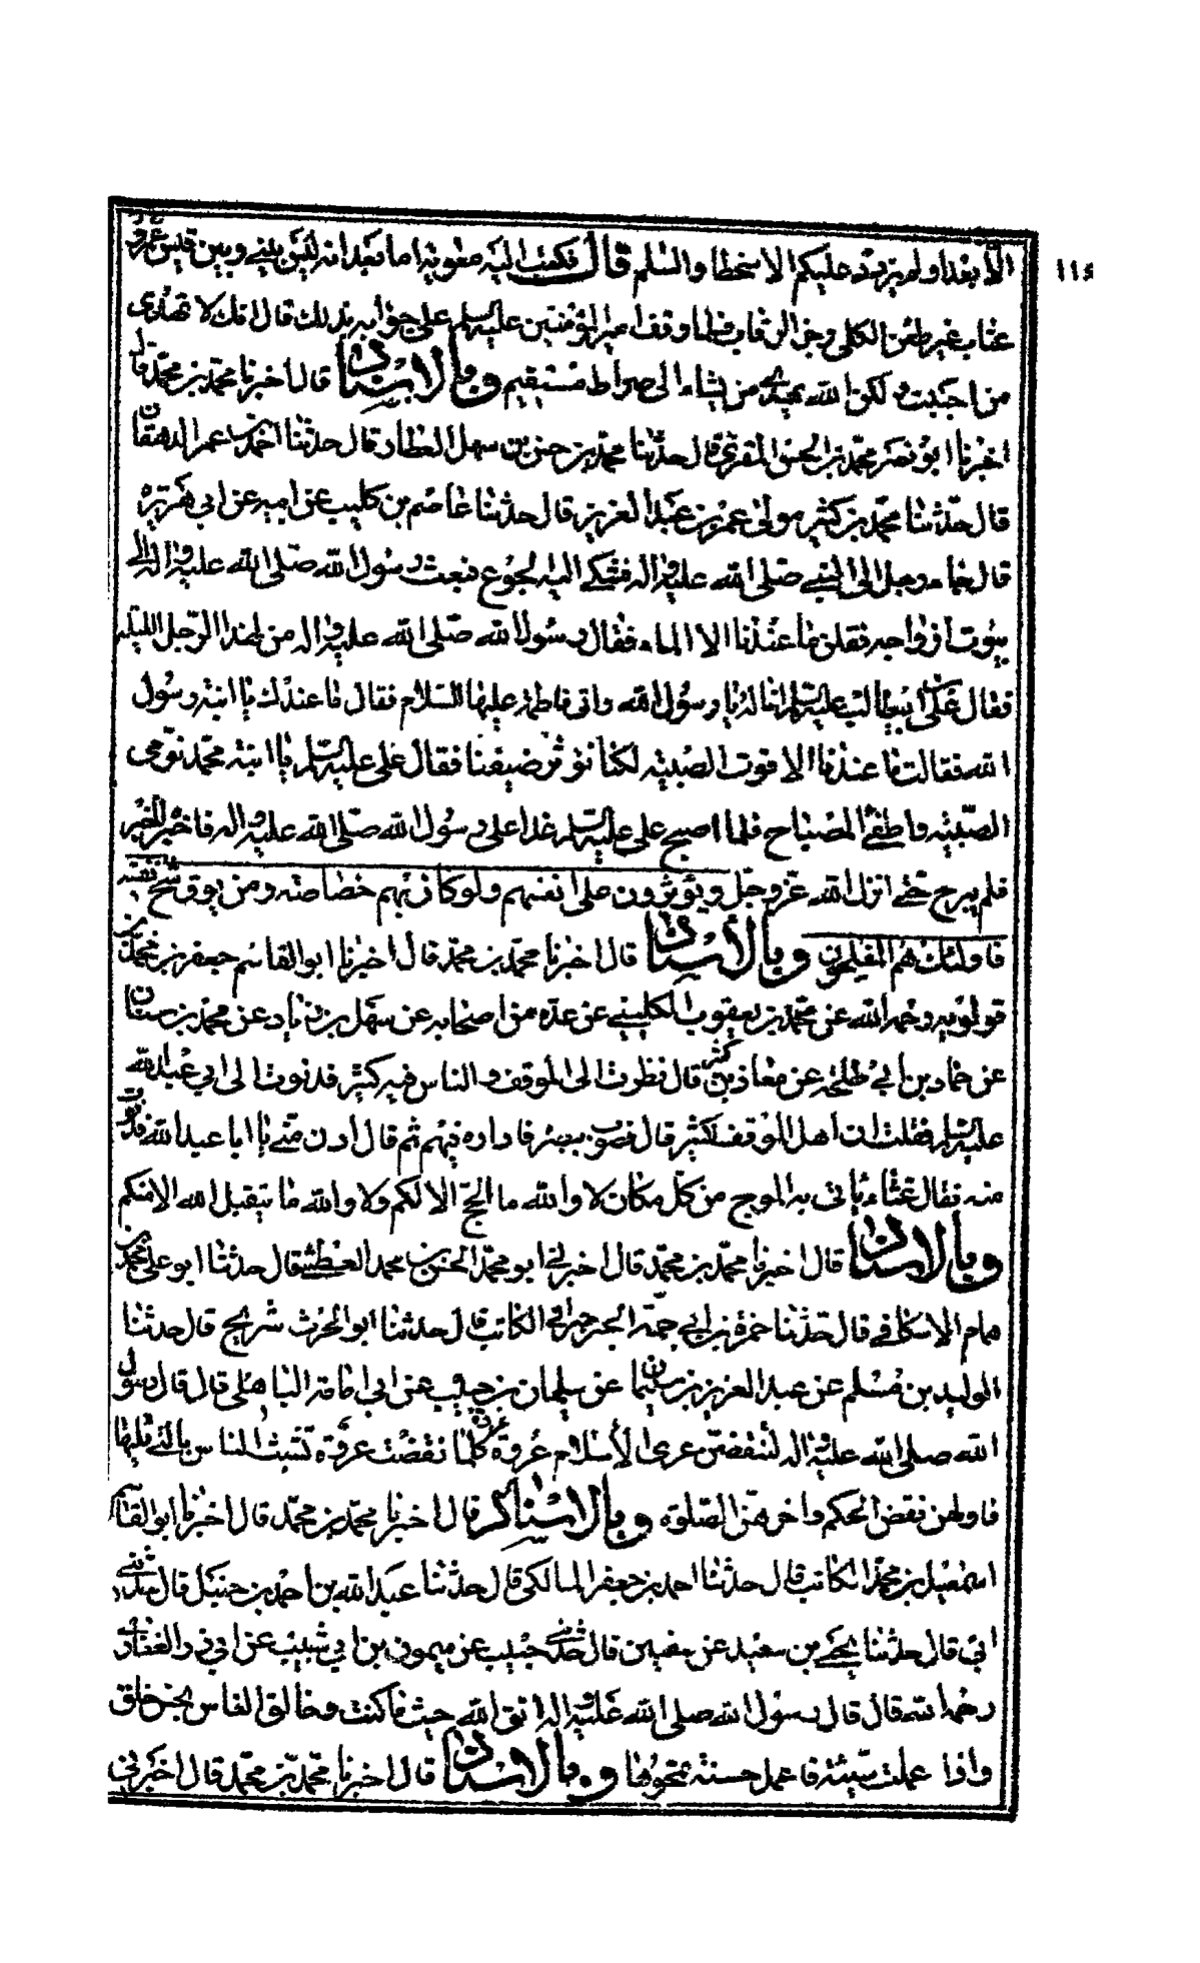 الا بعدا ولم يزده عليكم الا سخطا والسلم قال فكتب اليه معوية اما بعد انه ليس بينى وبين قيس
عتاب غير طعن الكلى وحز الرقاب فلما وقف امير المؤمنين عليه السلم على جوابه بذلك قال انك لا تهدى
من احببت ولكن الله يهدى من يشاء الى صراط مستقيم وبالاسناد قال اخبرنا محمد بن محمد قال
اخبرنا ابو نصر محمد بن الحسين المقرئ قال حدثنا محمد بن سهل العطار قال حدثنا احمد بن عمر الدهقان
قال حدثنا محمد بن كثير مولى عمر بن عبد العزيز قال حدثنا عاصم بن كليب عن ابيه عن ابى هريرة
قال جاء رجل الى النبى صلى الله عليه واله فشكى اليه الجوع فبعث رسول الله صلى الله عليه واله الى
بيوت ازواجه فقلن ما عندنا الا الماء فقال رسول الله صلى الله عليه واله من لهذا الرجل الليلة
فقال على بن ابيطالب عليه السلم انا له يا رسول الله واتى فاطمة عليها السلام فقال ما عندك يا ابنة رسول
الله فقالت ما عندنا الا قوت الصبية لكنا نؤثر ضيفنا فقال على عليه السلم يا ابنة محمد نومى
الصبية واطفئ المصباح فلما اصبح على عليه السلم غدا على رسول الله صلى الله عليه واله فاخبره الخبر
فلم يبرح حتى انزل الله عز وجل ويؤثرون على انفسهم ولو كان بهم خصاصة ومن يوق شح نفسه
فاولئك هم المفلحون وبالاسناد قال اخبرنا محمد بن محمد قال اخبرنا ابو القاسم جعفر بن محمد بن
قولويه رحمه الله عن محمد بن يعقوب الكلينى عن عدة من اصحابه عن سهل بن زياد عن محمد بن سنان
عن حماد بن ابى طلحة عن معاذ بن كثير قال نظرت الى الموقف والناس فيه كثير فدنوت الى ابى عبد الله
عليه السلم فقلت ان اهل الموقف لكثير قال فصوب ببصره فاداره فيهم ثم قال ادن منى يا ابا عبد الله فدنوت
منه فقال غثاء ياتى به الموج من كل مكان لا والله ما الحج الا لكم ولا والله ما يتقبل الله الا منكم
وبالاسناد قال اخبرنا محمد بن محمد قال اخبرنى ابو محمد الحسن بن محمد العطشى قال حدثنا ابو على محمد بن
همام الاسكافى قال حدثنا حمزة بن ابى حمة الجرجرائى الكاتب قال حدثنا ابو الحرث شريح قال حدثنا
الوليد بن مسلم عن عبد العزيز بن سليمان عن سليمان بن حبيب عن ابى امامة الباهلى قال قال رسول
الله صلى الله عليه واله لتنقضن عرى الاسلام عروة عروة كلما نقضت عروة تشبث الناس بالتى تليها
فاولهن نقض الحكم واخرهن الصلوة وبالاسناد قال اخبرنا محمد بن محمد قال اخبرنا ابو القاسم
اسمعيل بن محمد الكاتب قال حدثنا احمد بن جعفر المالكى قال حدثنا عبد الله بن احمد بن حنبل قال حدثنى
ابى قال حدثنا يحيى بن سعيد عن سفيان قال حدثنى حبيب عن ميمون بن ابى شبيب عن ابى ذر الغفارى
رحمه الله قال قال رسول الله صلى الله عليه واله اتق الله حيث ما كنت وخالق الناس بحسن خلق
واذا عملت سيئة فاعمل حسنة تمحوها وبالاسناد قال اخبرنا محمد بن محمد قال اخبرنى